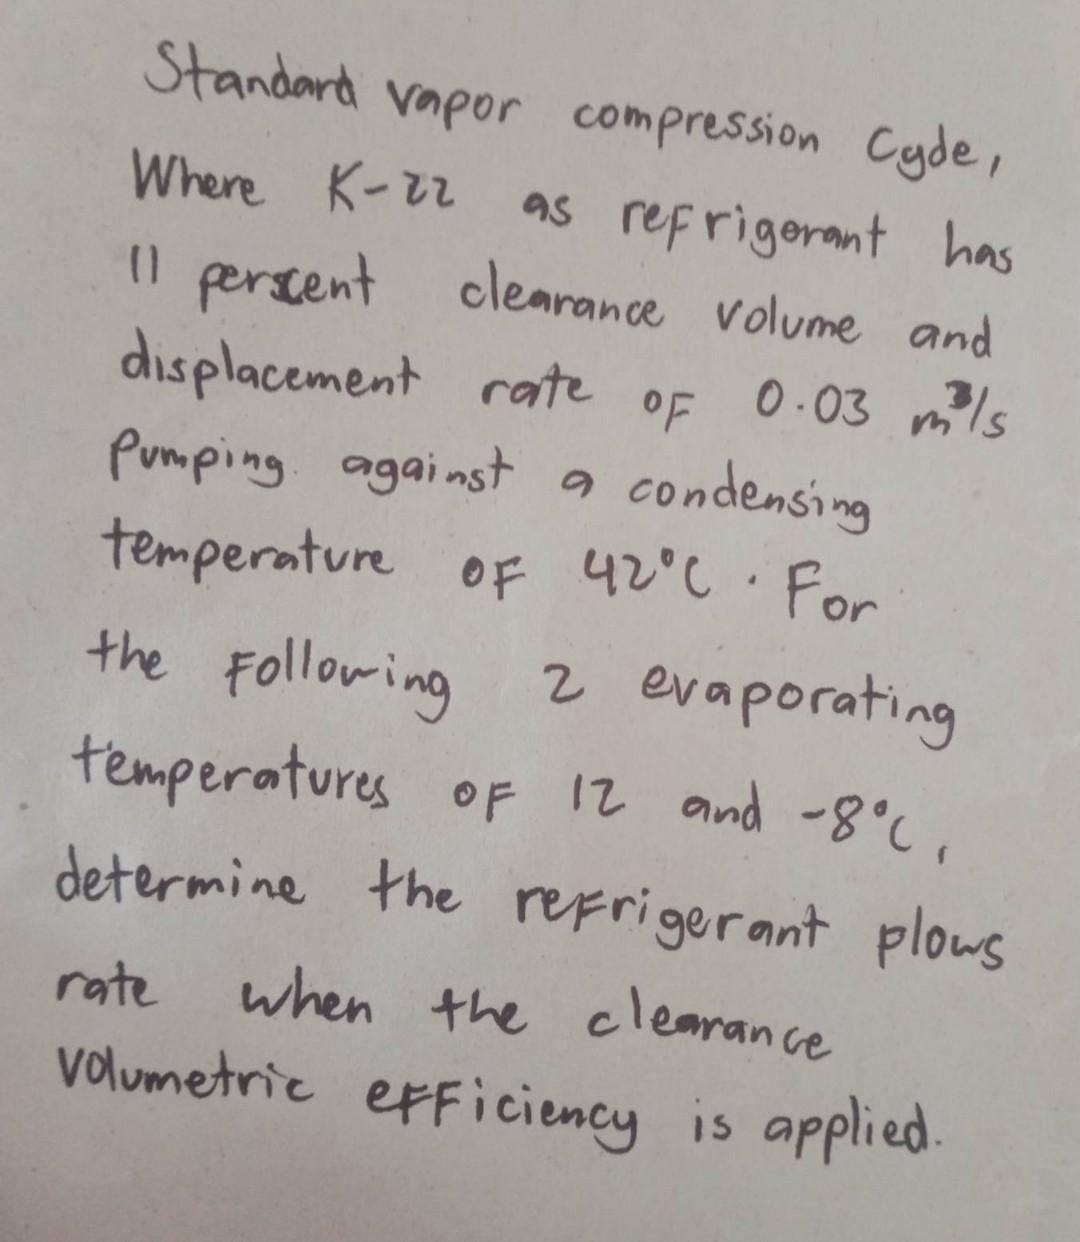 Standard vapor compression Cycle,
Where R-22 as refrigerant has
11 percent clearance volume and
displacement rate of 0.03 m³/s
Pumping against a condensing
temperature of 42°C. For
the following 2 evaporating
temperatures of 12 and -8°C,
determine the refrigerant plows
rate when the clearance
volumetric efficiency is applied.